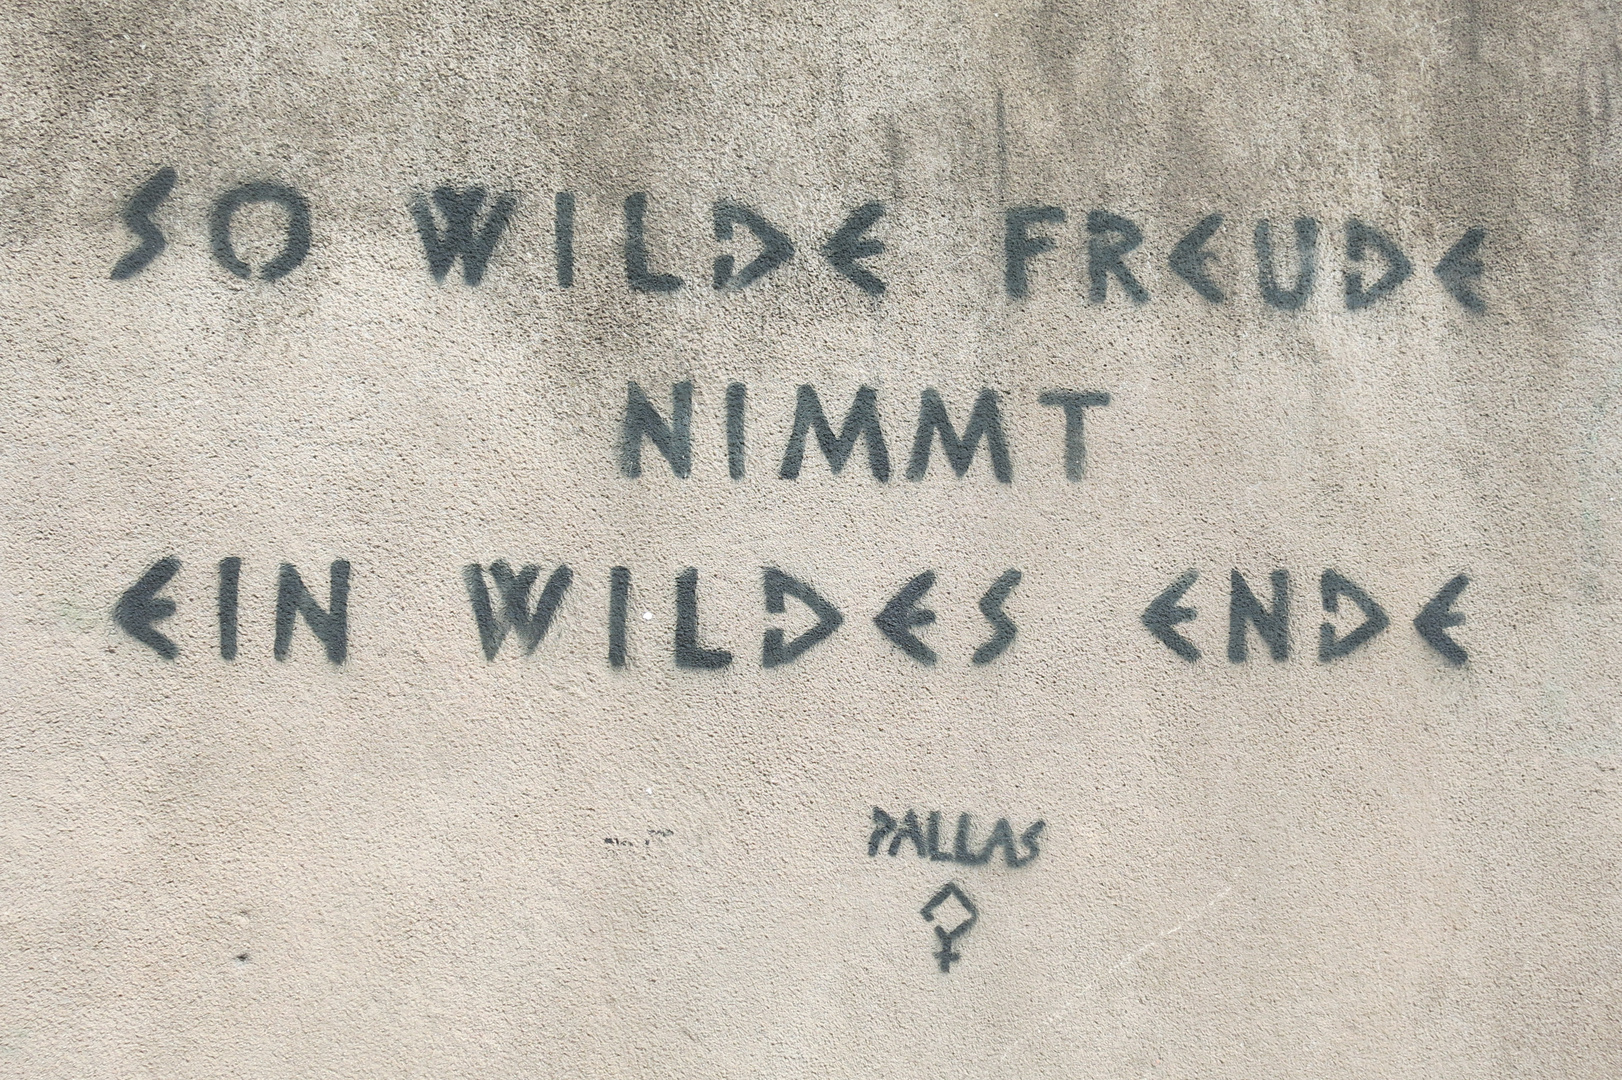 SO WILDE FREUDE
NIMMT
EIN WILDES ENDE
PALLAS